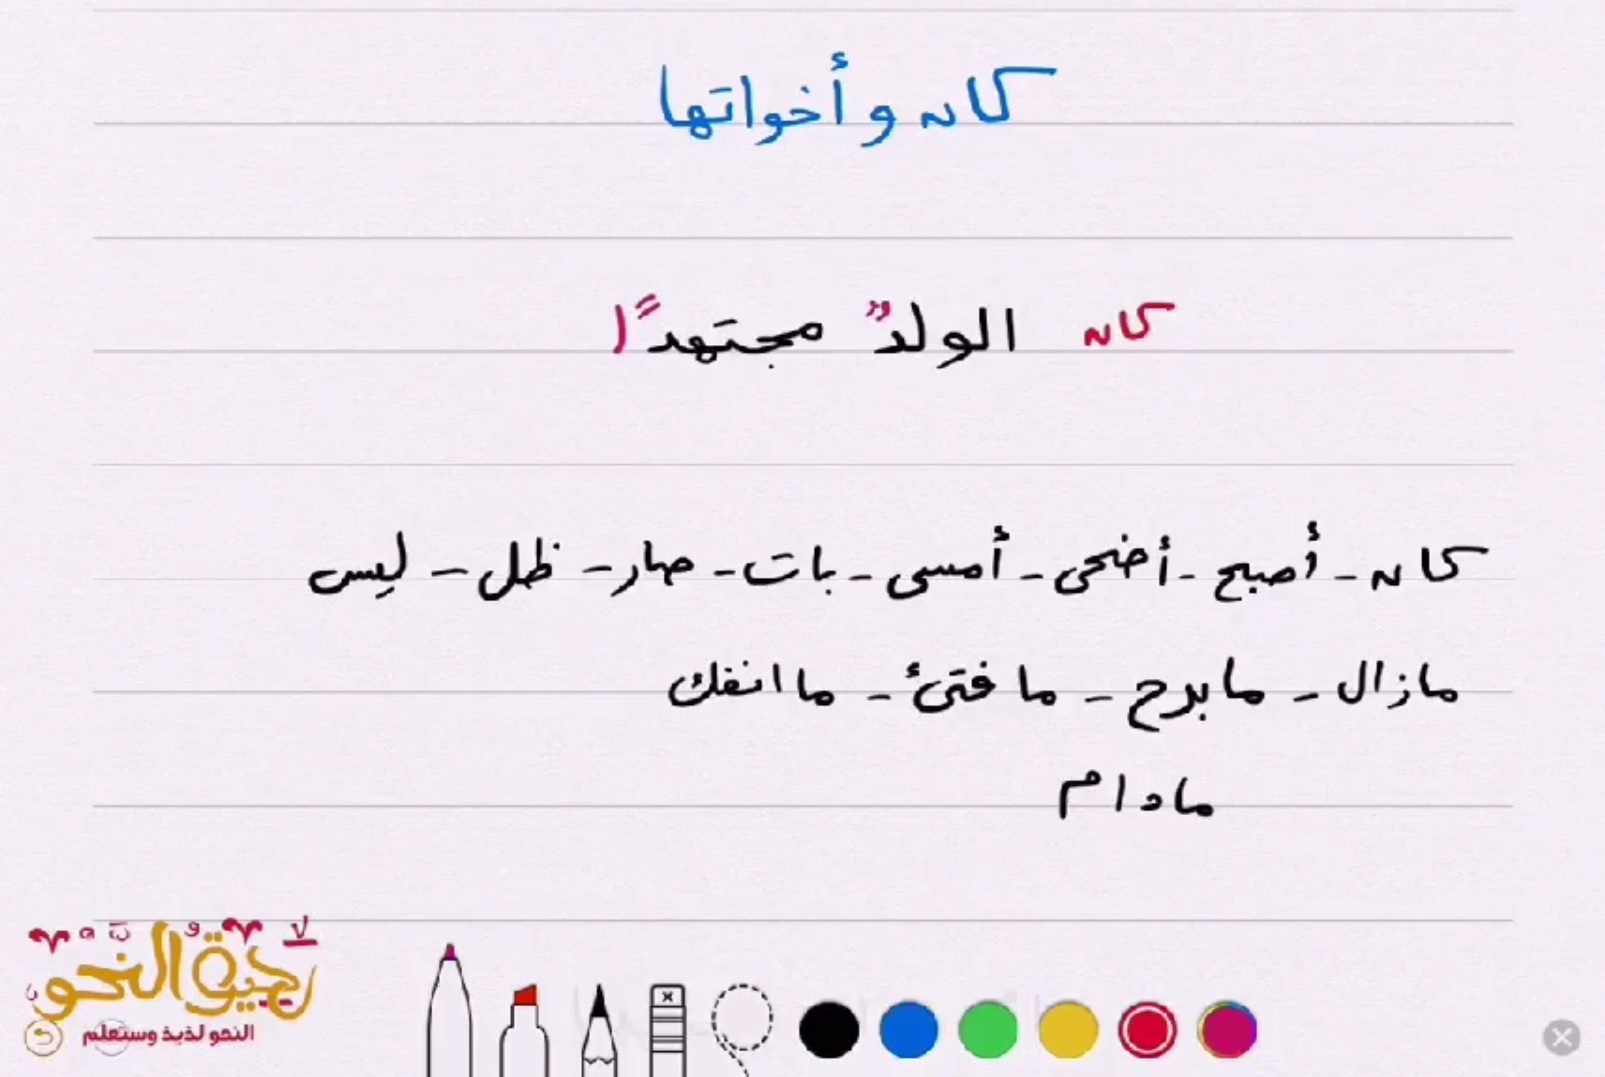 كان وأخواتها
كان الولدُ مجتهدًا
كان - أصبح - أضحى - أمسى - بات - صار - ظل - ليس
مازال - مابرح - ما فتئ - ما انفك
مادام
رحيق النحو
النحو لذيذ وستعلم